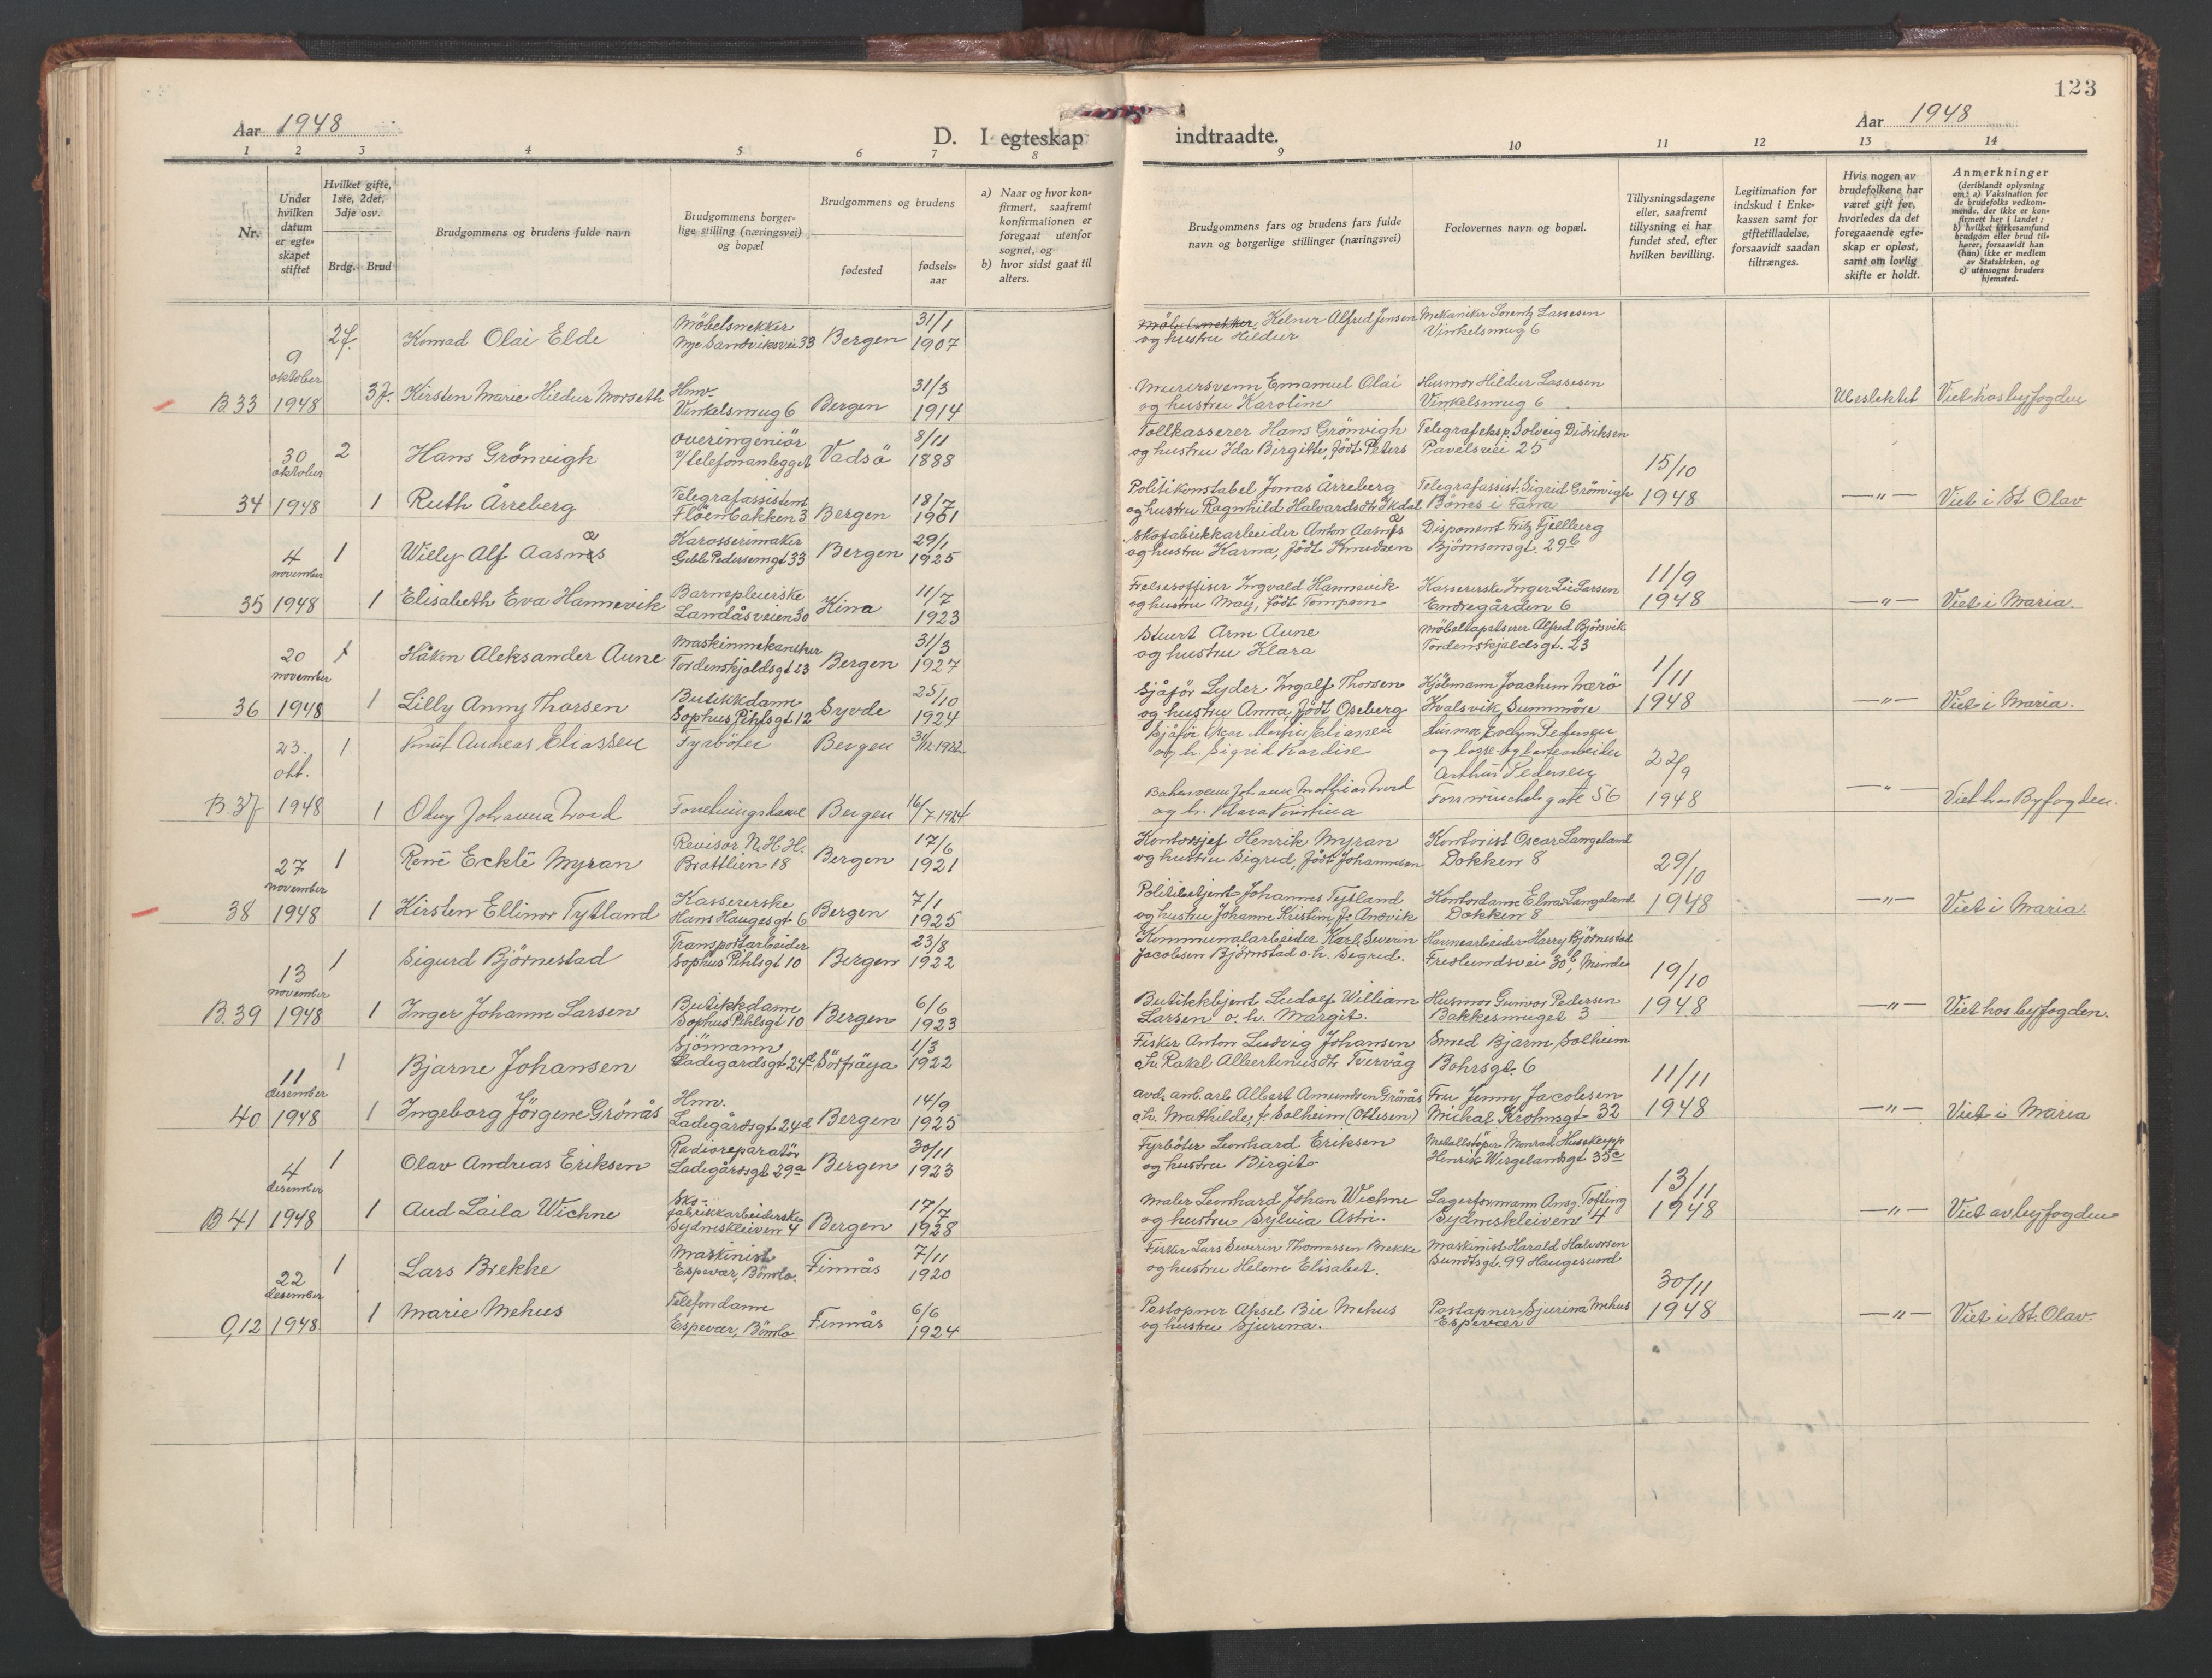 123
Aar 1948
D. I egteskap indtraadte.
Aar 1948
1 2 3 4 5 6 7 8 9 10 11 12 13 14
Nr.
Under hvilken datum er egteskapet stiftet
Hvilket gifte, 1ste, 2det, 3dje osv.
Brdg. Brud
Brudgommens og brudens fulde navn
Brudgommens borgerlige stilling (næringsvei) og bopæl
Brudgommens og brudens
fødested
fødselsaar
a) Naar og hvor konfirmert, saafremt konfirmationen er foregaat utenfor sognet, og
b) hvor sidst gaat til alters.
Brudgommens fars og brudens fars fulde navn og borgerlige stillinger (næringsvei)
Forlovernes navn og bopæl.
Tillysningsdagene eller, saafremt tillysning ei har fundet sted, efter hvilken bevilling.
Legitimation for indskud i Enkekassen samt for giftetilladelse, forsaavidt saadan tiltrænges.
Hvis nogen av brudefolkene har været gift før, hvorledes da det foregaaende egteskap er opløst, samt om lovlig skifte er holdt.
Anmerkninger
(deriblandt oplysning om: a) Vaksination for de brudefolks vedkommende, der ikke er konfirmert her i landet; b) hvilket kirkesamfund brudgom eller brud tilhører, forsaavidt han (hun) ikke er medlem av Statskirken, og c) utensogns bruders hjemsted.
B.33 9 oktober 1948
2f. Konrad Olai Elde Möbelsnekker Nye Sandviksvei 33 Bergen 31/1 1907
Kelner Alfred Jensen og hustru Hildur
Mekaniker Lorentz Lassesen Vinkelsmug 6
3f. Kirsten Marie Hildur Morseth Hmv. Vinkelsmug 6 Bergen 31/3 1914
Murersvenn Emanuel Olai og hustru Karoline
Husmor Hildur Lassesen Vinkelsmug 6
Ubeslektet Viet hos byfogden
34 30 oktober 1948
2 Hans Grönvigh Overingeniör v/telefonanlegget Vadsö 8/11 1888
Tollkasserer Hans Grönvigh og hustru Ida Birgitte, födt Peters
Telegrafeksp. Solveig Didriksen Pavelsvei 25
1 Ruth Årreberg Telegrafassistent Flöenbakken 3 Bergen 18/7 1901
Politikonstabel Jonas Årreberg og hustru Ragnhild Halvardsdtr Ikdal
Telegrafassist. Sigrid Grönvigh Bönes i Fana
15/10 1948 —"— Viet i St Olav
35 4 november 1948
1 Willy Alf Aasnæs Karosserimaker Geble Pedersensgt 33 Bergen 29/1 1925
Skofabrikkarbeider Anton Aasnæs og hustru Karna, födt Knudsen
Disponent Fritz Fjellberg Björnsonsgt. 29b
1 Elisabeth Eva Hannevik Barnepleierske Landåsveien 30 Kina 11/7 1923
Frelsesoffiser Ingvald Hannevik og hustru May, födt Tompson
Kassererske Inger Lie Larsen Endregården 6
11/9 1948 —"— Viet i Maria.
36 20 november 1948
1 Håkon Aleksander Aune Maskinmekaniker Tordenskjoldsgt 23 Bergen 31/3 1927
Stuert Arne Aune og hustru Klara
Möbeltapetserer Alfred Björsvik Tordenskjoldsgt. 23
1 Lilly Anny Thorsen Butikkdame Sophus Pihlsgt. 12 Syvde 25/10 1924
Sjåför Lyder Ingolf Thorsen og hustru Anna, födt Oseberg
Kjöbmann Joachim Værö Kvalsvik, Sunnmöre
1/11 1948 —"— Viet i Maria.
B.37 23. okt. 1948
1 Knut Andreas Eliassen Fyrböter Bergen 31/12-1922
Sjåför Oscar Martin Eliassen og h. Sigrid Kardise
Husmor Evelyn Pedersen og losse- og lastearbeider Arthur Pedersen
1 Olny Johanna Nord Forretningsdame Bergen 16/7-1924
Bakersvenn Johann Mathias Nord og h. Klara Kristina
gate 56
22/9 1948 —"— Viet hos Byfogden.
38 27 november 1948
1 Renê Ecklê Myran Revisor N.H.H. Brattlien 18 Bergen 17/6 1921
Kontorsjef Henrik Myran og hustru Sigrid, födt Johannesen
Kontorist Oscar Langeland Dokken 8
1 Kirsten Ellinor Tytland Kassererske Hans Haugesgt 6 Bergen 7/1 1925
Politibetjent Johannes Tytland og hustru Johanne Kristine, f. Andvik
Kontordame Elna Langeland Dokken 8
29/10 1948 —"— Viet i Maria.
B.39 13 november 1948
1 Sigurd Björnestad Transportarbeider Sophus Pihlsgt 10 Bergen 23/8 1922
Kommunalarbeider Karl Severin Jacobsen Björnstad o.h. Sigrid.
Havnearbeider Harry Björnestad Fredlundsvei 30b, Minde
1 Inger Johanne Larsen Butikkdame Sophus Pihlsgt 10 Bergen 6/6 1923
Butikkbjent Ludolf William Larsen o.h. Margit.
Husmor Gunvor Pedersen Bakkesmuget 3
19/10 1948 —"— Viet hos byfogden.
40 11 desember 1948
1 Bjarne Johansen Sjömann Ladegårdsgt 24d Sörfröya 1/3 1922
Fisker Anton Ludvig Johansen o.h. Rakel Albertinusdtr Tvervåg
Smed Bjarne Solheim Bohrsgt. 6
1 Ingeborg Jörgine Grönås Hmv. Ladegårdsgt 24d Bergen 14/9 1925
avd. anb. arb Albert Amundsen Grönås o.h. Mathilde, f. Solheim (Ottesen)
Fru Jenny Jacobsen Michal Krohnsgt 32
11/11 1948 —"— Viet i Maria
B 41 4 desember 1948
1 Olav Andreas Eriksen Radioreparatör Ladegårdsgt 29a Bergen 30/11 1923
Fyrböter Leonhard Eriksen og hustru Birgit
Metallstöper Monrad Husekupp Henrik Wergelandsgt 35c
1 Aud Laila Wichne Skofabrikkarbeiderske Sydneskleiven 4 Bergen 17/7 1928
Maler Leonhard Johan Wichne og hustru Sylvia Astri.
Lagerformann Ansg. Tofting Sydneskleiven 4
13/11 1948 —"— Viet av byfogden
O,12 22 desember 1948
1 Lars Brekke Maskinist Espevær, Bömlo. Finnås 7/11 1920
Fisker Lars Severin Thomassen Brekke og hustru Helene Elisabet.
Maskinist Harald Halvorsen Sundtsgt. 99 Haugesund
1 Marie Mehus Telefondame Espevær, Bömlo Finnås 6/6 1924
Postopner Aksel Bie Mehus og hustru Sjurina.
Postapner Sjurina Mehus Espevær
30/11 1948 —"— Viet i St. Olav.